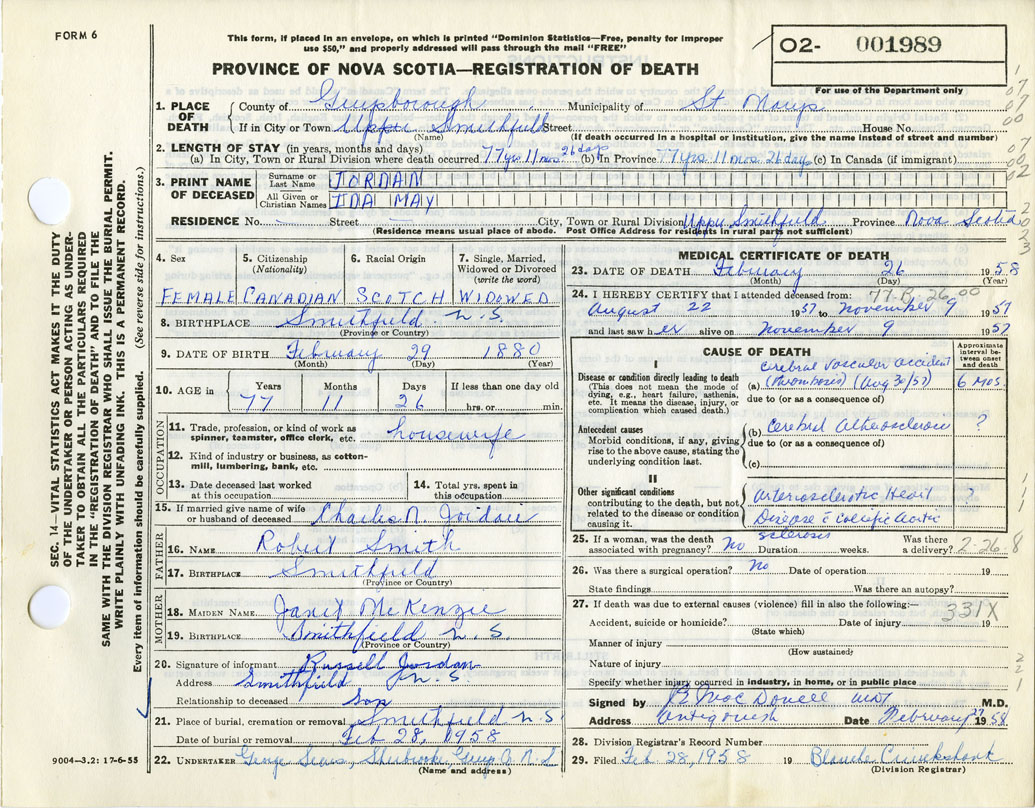 FORM 6
This form, if placed in an envelope, on which is printed "Dominion Statistics—Free, penalty for improper
use $50," and properly addressed will pass through the mail "FREE"
O2- 001989
For use of the Department only
PROVINCE OF NOVA SCOTIA—REGISTRATION OF DEATH
1. PLACE OF DEATH
County of Guysborough Municipality of St Marys
If in City or Town Upper Smithfield Street House No.
(Name) (If death occurred in a hospital or institution, give the name instead of street and number)
2. LENGTH OF STAY (in years, months and days)
(a) In City, Town or Rural Division where death occurred 77 yrs 11 mos 26 days (b) In Province 77 yrs 11 mos 26 days (c) In Canada (if immigrant)
3. PRINT NAME OF DECEASED
Surname or Last Name JORDAN
All Given or Christian Names IDA MAY
RESIDENCE No. — Street — City, Town or Rural Division Upper Smithfield Province Nova Scotia
(Residence means usual place of abode. Post Office Address for residents in rural parts not sufficient)
4. Sex
FEMALE
5. Citizenship
(Nationality)
CANADIAN
6. Racial Origin
SCOTCH
7. Single, Married,
Widowed or Divorced
(write the word)
WIDOWED
8. BIRTHPLACE Smithfield N.S.
(Province or Country)
9. DATE OF BIRTH February 29 1880
(Month) (Day) (Year)
10. AGE in
Years Months Days If less than one day old
77 11 26 hrs. or min.
OCCUPATION
11. Trade, profession, or kind of work as
spinner, teamster, office clerk, etc. housewife
12. Kind of industry or business, as cotton-
mill, lumbering, bank, etc.
13. Date deceased last worked
at this occupation
14. Total yrs. spent in
this occupation
15. If married give name of wife
or husband of deceased Charles N. Jordan
FATHER
16. NAME Robert Smith
17. BIRTHPLACE Smithfield
(Province or Country)
MOTHER
18. MAIDEN NAME Janet McKenzie
19. BIRTHPLACE Smithfield N.S.
(Province or Country)
20. Signature of informant Russell Jordan
Address Smithfield N.S.
Relationship to deceased Son
21. Place of burial, cremation or removal Smithfield N.S.
Date of burial or removal Feb 28, 1958
22. UNDERTAKER George Sears, Sherbrooke, Guys Co N.S.
(Name and address)
9004—3.2: 17-6-55
MEDICAL CERTIFICATE OF DEATH
23. DATE OF DEATH February 26 1958
(Month) (Day) (Year)
24. I HEREBY CERTIFY that I attended deceased from:
August 22 1957 to November 9 1957
and last saw her alive on November 9 1957
CAUSE OF DEATH
Approximate
interval be-
tween onset
and death
I
Disease or condition directly leading to death
(This does not mean the mode of
dying, e.g., heart failure, asthenia,
etc. It means the disease, injury, or
complication which caused death.)
cerebral vascular accident
(a) (thrombosis) (Aug 30/57) 6 mos.
due to (or as a consequence of)
Antecedent causes
Morbid conditions, if any, giving
rise to the above cause, stating the
underlying condition last.
(b) cerebral atherosclerosis ?
due to (or as a consequence of)
(c)
II
Other significant conditions
contributing to the death, but not
related to the disease or condition
causing it.
arteriosclerotic Heart ?
Disease c calcific aortic
sclerosis
25. If a woman, was the death
associated with pregnancy? no Duration weeks. Was there
a delivery?
2-26 8
26. Was there a surgical operation? no Date of operation 19
State findings Was there an autopsy?
27. If death was due to external causes (violence) fill in also the following:—
331X
Accident, suicide or homicide? Date of injury 19
(State which)
Manner of injury
(How sustained)
Nature of injury
Specify whether injury occurred in industry, in home, or in public place
Signed by MacDonell M.D.
Address Antigonish Date February 1958
28. Division Registrar's Record Number
29. Filed Feb. 28, 1958 19 Blanche Cruickshank
(Division Registrar)
SEC. 14—VITAL STATISTICS ACT MAKES IT THE DUTY
OF THE UNDERTAKER OR PERSON ACTING AS UNDER-
TAKER TO OBTAIN ALL THE PARTICULARS REQUIRED
IN THE "REGISTRATION OF DEATH" AND TO FILE THE
SAME WITH THE DIVISION REGISTRAR WHO SHALL ISSUE THE BURIAL PERMIT.
WRITE PLAINLY WITH UNFADING INK. THIS IS A PERMANENT RECORD.
Every item of information should be carefully supplied. (See reverse side for instructions.)